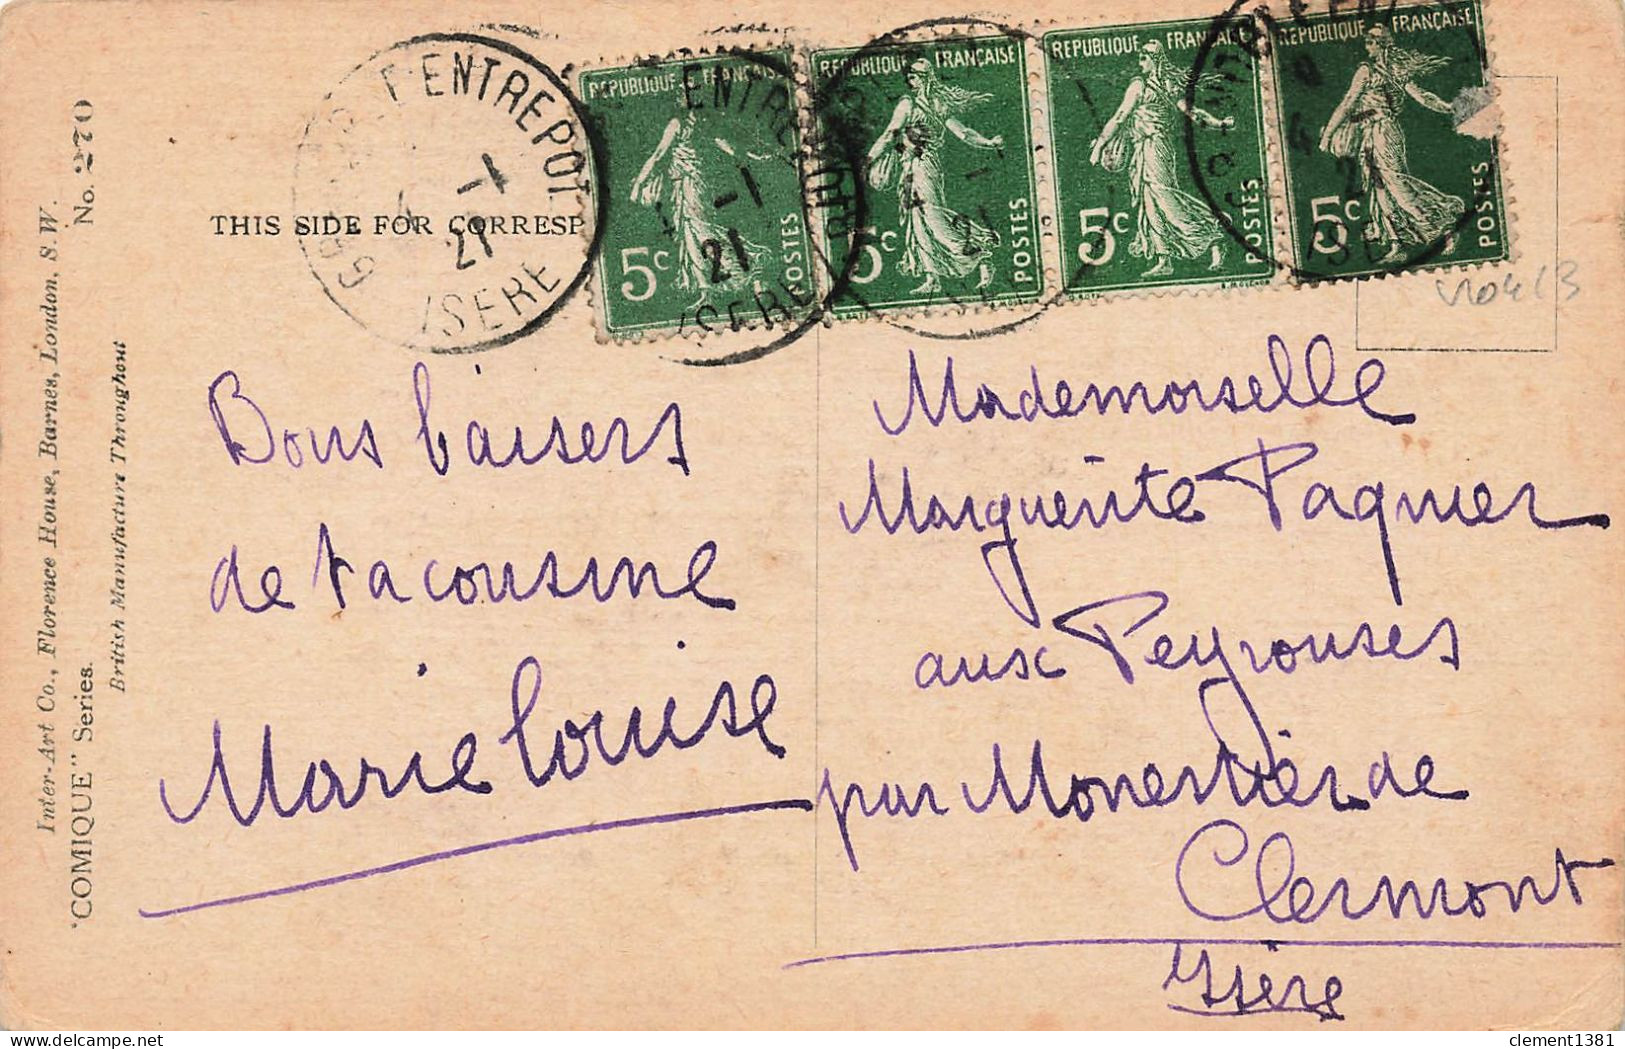 Inter-Art Co., Florence House, Barnes, London, S.W.
"COMIQUE" Series.
No. 270
British Manufacture Throughout
THIS SIDE FOR CORRESP
L'ENTREPOT
4 -1
21
ISERE
REPUBLIQUE FRANÇAISE
5c
POSTES
ENTREPOT
-1
21
ISERE
REPUBLIQUE FRANÇAISE
5c
POSTES
4
21
REPUBLIQUE FRANÇAISE
5c
POSTES
REPUBLIQUE FRANÇAISE
5c
POSTES
4
21
ISERE
Bons baisers
de ta cousine
Marie Louise
Mademoiselle
Marguerite Pagnier
aux Peyrouses
par Monestier de
Clermont
Isère
clement1381